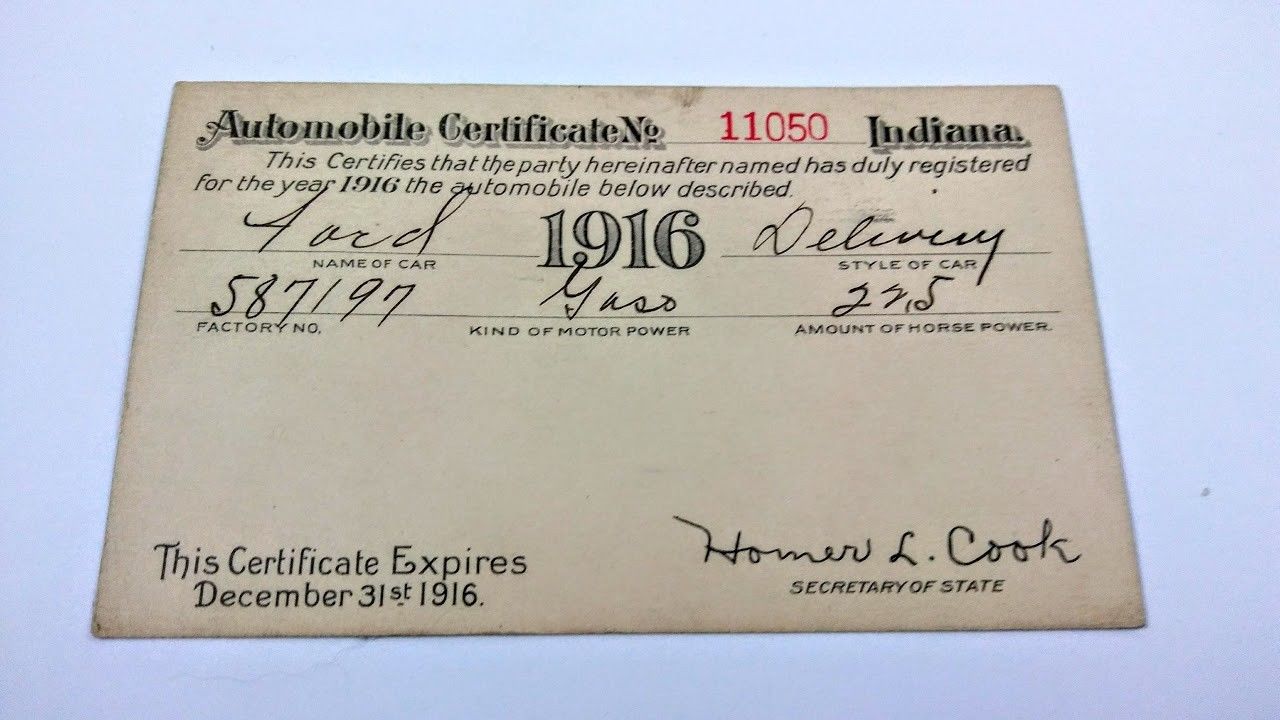 Automobile Certificate No 11050 Indiana.
This Certifies that the party hereinafter named has duly registered
for the year 1916 the automobile below described.
Ford 1916 Delivery
NAME OF CAR STYLE OF CAR
587197 Gaso 22,5
FACTORY NO. KIND OF MOTOR POWER AMOUNT OF HORSE POWER.
This Certificate Expires
December 31st 1916.
Homer L. Cook
SECRETARY OF STATE